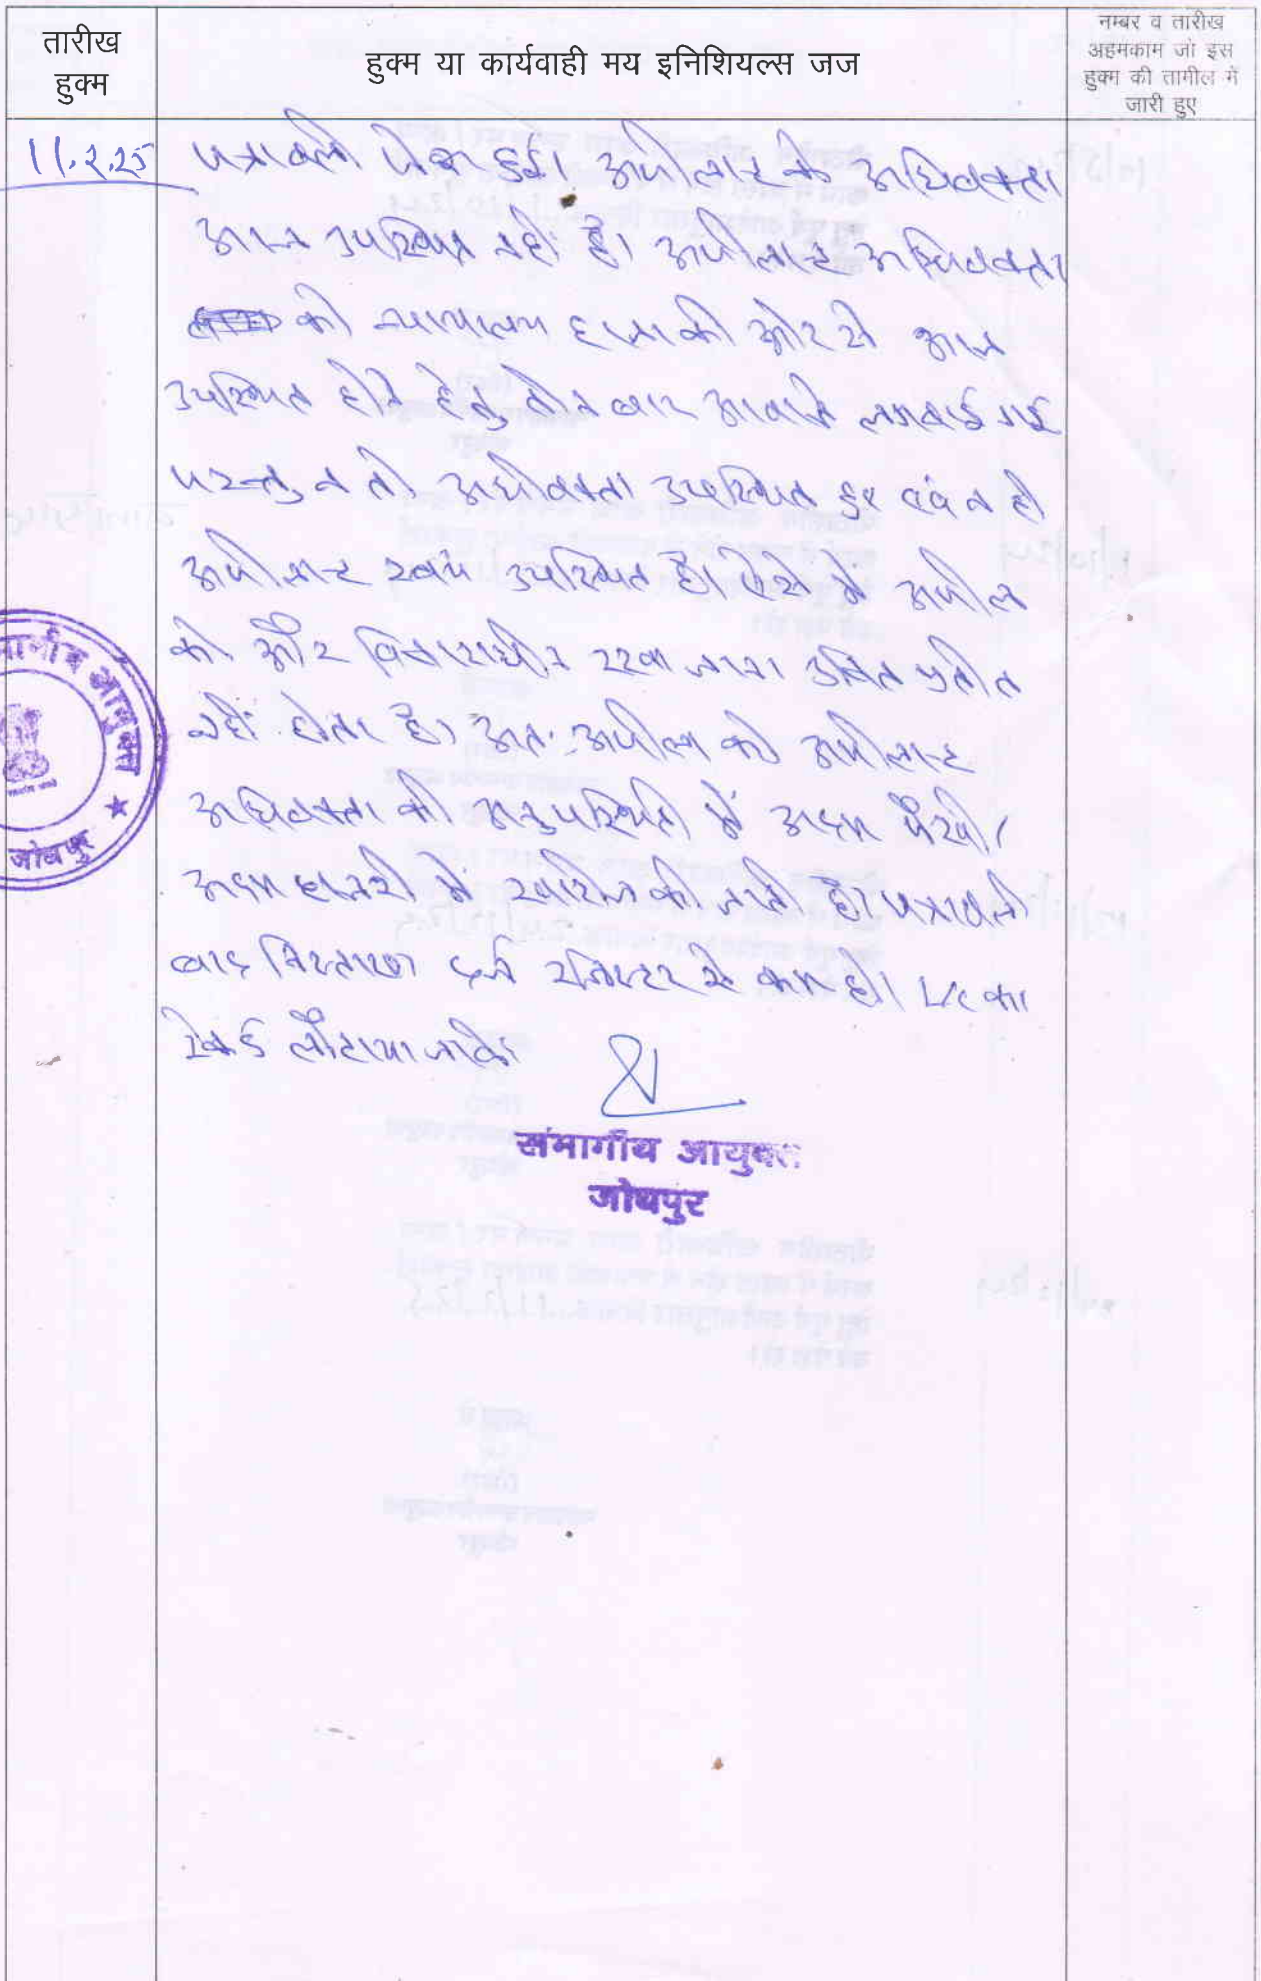 तारीख
हुक्म
हुक्म या कार्यवाही मय इनिशियल्स जज
नम्बर व तारीख
अहमकाम जो इस
हुक्म की तामील में
जारी हुए
11.2.25
पत्रावली पेश हुई। अपीलान्ट के अधिवक्ता
आज उपस्थित नहीं है। अपीलान्ट अधिवक्ता
को न्यायालय हाजा की ओर से आज
उपस्थित होने हेतु तीन बार आवाजे लगवाई गई
परन्तु न तो अधीवक्ता उपस्थित हुए एवं न ही
अपीलान्ट स्वयं उपस्थित है। ऐसे में अपील
को और विचाराधीन रखा जाना उचित प्रतीत
नहीं होता है। अतः अपील को अपीलान्ट
अधिवक्ता की अनुपस्थिती में अदम पैरवी/
अदम हाजरी में खारीज की जाती है। पत्रावली
बाद निस्तारण दर्ज रजिस्टर से कम हो। L/c का
रेकर्ड लौटाया जावे।
संभागीय आयुक्त
जोधपुर
भागीय आयुक्त
जोधपुर